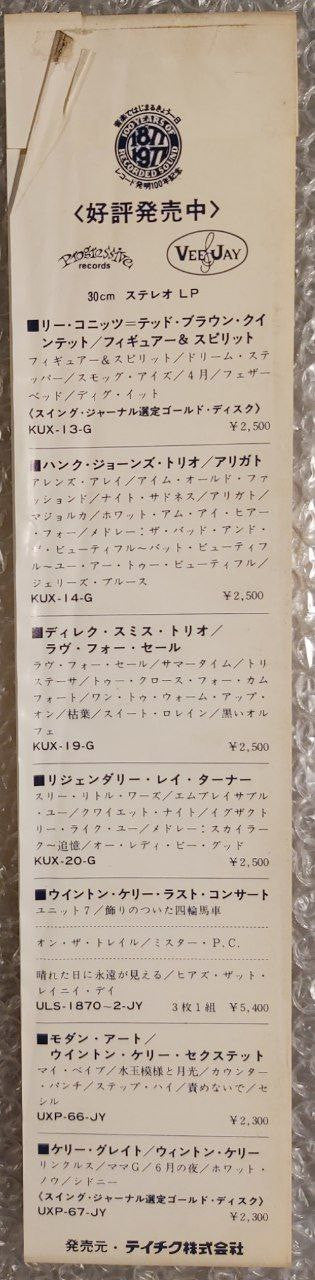 音楽ではじまるきょう一日
100 YEARS OF
1877
1977
RECORDED SOUND
レコード発明100年記念
〈好評発売中〉
Progressive
records
VEE JAY
30cm ステレオ LP
■リー・コニッツ＝テッド・ブラウン・クイ
ンテット／フィギュアー＆スピリット
フィギュアー＆スピリット／ドリーム・ステ
ッパー／スモッグ・アイズ／4月／フェザー
ベッド／ディグ・イット
〈スイング・ジャーナル選定ゴールド・ディスク〉
KUX-13-G ￥2,500
■ハンク・ジョーンズ・トリオ／アリガト
アレンズ・アレイ／アイム・オールド・ファ
ッションド／ナイト・サドネス／アリガト／
マジョルカ／ホワット・アム・アイ・ヒアー
・フォー／メドレー：ザ・バッド・アンド・
ザ・ビューティフル～バット・ビューティフ
ル～ユー・アー・トゥー・ビューティフル／
ジェリーズ・ブルース
KUX-14-G ￥2,500
■ディレク・スミス・トリオ／
ラヴ・フォー・セール
ラヴ・フォー・セール／サマータイム／トリ
ステーサ／トゥー・クロース・フォー・カム
フォート／ワン・トゥ・ウォーム・アップ・
オン／枯葉／スイート・ロレイン／黒いオル
フェ
KUX-19-G ￥2,500
■リジェンダリー・レイ・ターナー
スリー・リトル・ワーズ／エムブレイサブル
・ユー／クワイエット・ナイト／イグザクト
リー・ライク・ユー／メドレー：スカイラー
ク～追憶／オー・レディ・ビー・グッド
KUX-20-G ￥2,500
■ウイントン・ケリー・ラスト・コンサート
ユニット7／飾りのついた四輪馬車
オン・ザ・トレイル／ミスター・P.C.
晴れた日に永遠が見える／ヒアズ・ザット・
レイニイ・デイ
ULS-1870～2-JY 3枚1組 ￥5,400
■モダン・アート／
ウイントン・ケリー・セクステット
マイ・ベイブ／水玉模様と月光／カウンター
・パンチ／ステップ・ハイ／責めないで／セ
シル
UXP-66-JY ￥2,300
■ケリー・グレイト／ウィントン・ケリー
リンクルス／ママG／6月の夜／ホワット・
ノウ／シドニー
〈スイング・ジャーナル選定ゴールド・ディスク〉
UXP-67-JY ￥2,300
発売元・テイチク株式会社